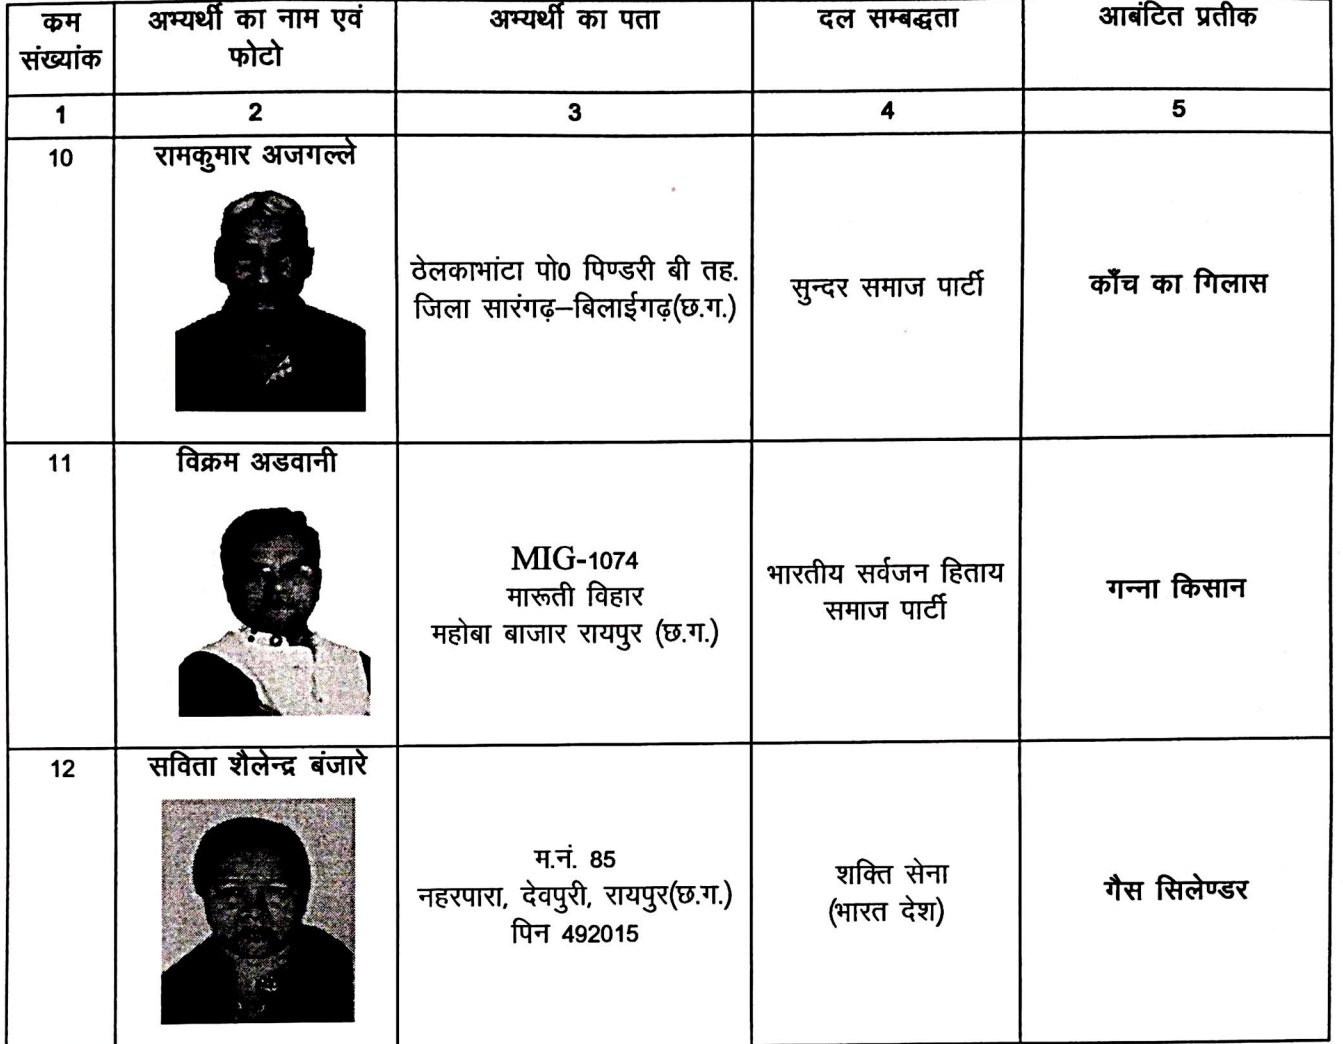 क्रम संख्यांक
अभ्यर्थी का नाम एवं फोटो
अभ्यर्थी का पता
दल सम्बद्धता
आबंटित प्रतीक
1
2
3
4
5
10
रामकुमार अजगल्ले
ठेलकाभांटा पो0 पिण्डरी बी तह.
जिला सारंगढ़–बिलाईगढ़(छ.ग.)
सुन्दर समाज पार्टी
काँच का गिलास
11
विक्रम अडवानी
MIG-1074
मारूती विहार
महोबा बाजार रायपुर (छ.ग.)
भारतीय सर्वजन हिताय
समाज पार्टी
गन्ना किसान
12
सविता शैलेन्द्र बंजारे
म.नं. 85
नहरपारा, देवपुरी, रायपुर(छ.ग.)
पिन 492015
शक्ति सेना
(भारत देश)
गैस सिलेण्डर